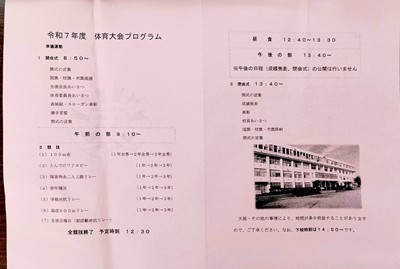 令和7年度 体育大会プログラム
準備運動
1 開会式 8：50～
開式の言葉
国旗・校旗・市旗掲揚
生徒会長あいさつ
体育委員長あいさつ
表紙絵・スローガン表彰
選手宣誓
閉式の言葉
午前の部 9：10～
2 競技
(1) 100m走 (1年女男→2年女男→3年女男)
(2) (1年→2年→3年)
(3) 障害物＆二人三脚リレー (1年→2年→3年)
(4) (1年→2年→3年)
(5) 学級対抗リレー (1年→2年→3年)
(6) 800mリレー (1年→2年→3年)
(7)
全競技終了 予定時刻 12：30
昼食 12：40～13：30
午後の部 13：40～
※午後の日程（成績発表、閉会式）の公開は行いません
3 閉会式 13：40～
開式の言葉
成績発表
表彰
校長あいさつ
国旗・校旗・市旗降納
閉式の言葉
天候・その他の事情により、時間が多少前後することがありますので、
ご了承ください。なお、下校時刻は14：50～です。